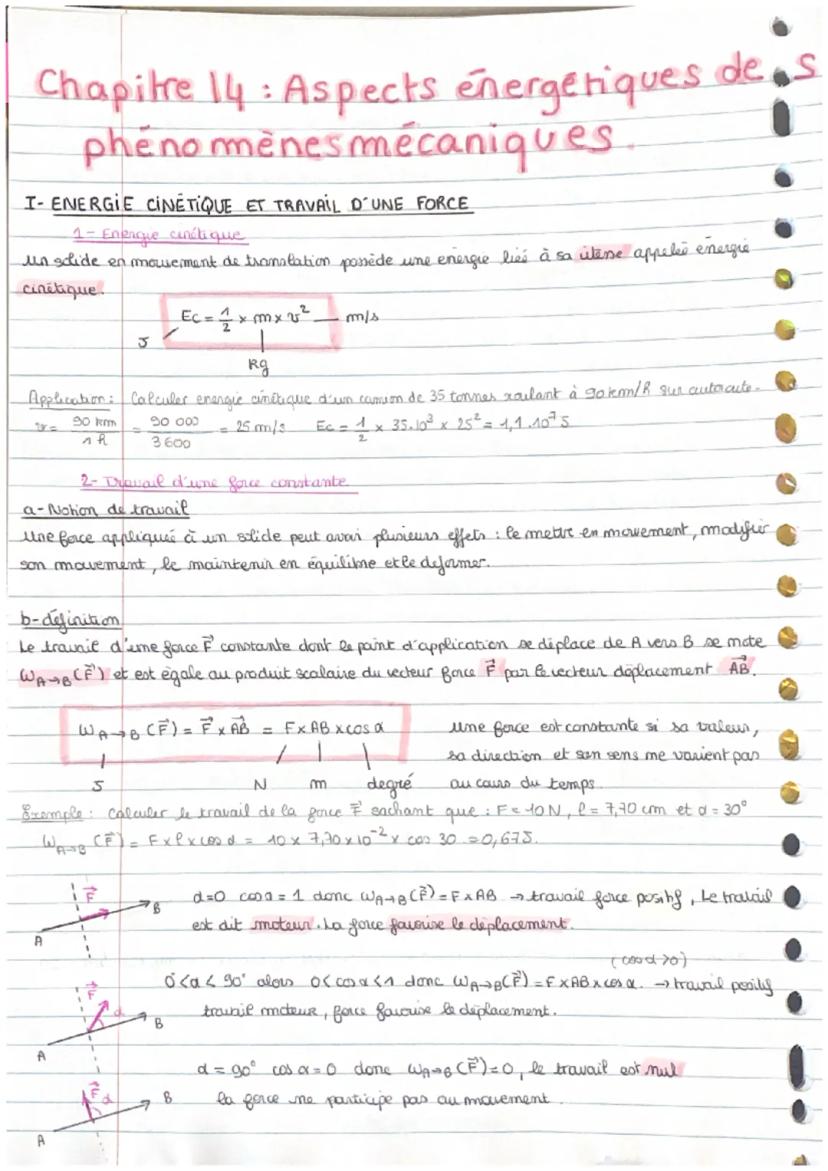 Chapitre 14 : Aspects énergétiques des
phénomènes mécaniques.
I- ENERGIE CINÉTIQUE ET TRAVAIL D'UNE FORCE
1- Energie cinétique
Un solide en mouvement de translation possède une énergie liée à sa vitesse appelée énergie
cinétique.
Ec = 1/2 × m × v² m/s
J
Kg
Application : Calculer energie cinétique d'un camion de 35 tonnes roulant à 90 km/h sur autoroute.
v = 90 km / 1 h = 90 000 / 3600 = 25 m/s Ec = 1/2 × 35.10³ × 25² = 1,1.10⁷ J
2- Travail d'une force constante
a- Notion de travail
Une force appliquée à un solide peut avoir plusieurs effets : le mettre en mouvement, modifier
son mouvement, le maintenir en équilibre et le deformer.
b- définition
Le travail d'une force F⃗ constante dont le point d'application se déplace de A vers B se note
W A→B (F⃗) et est égale au produit scalaire du vecteur force F⃗ par le vecteur déplacement AB⃗.
W A→B (F⃗) = F⃗ × AB⃗ = F × AB × cos α
J N m degré
Une force est constante si sa valeur,
sa direction et son sens ne varient pas
au cours du temps.
Exemple : calculer le travail de la force F⃗ sachant que : F = 10 N, l = 7,70 cm et α = 30°
W A→B (F⃗) = F × l × cos α = 10 × 7,70 × 10⁻² × cos 30 = 0,67 J.
F⃗
A
B
α=0 cos α = 1 donc W A→B (F⃗) = F × AB → travail force positif, Le travail
est dit moteur. La force favorise le déplacement.
(cos α > 0)
F⃗
α
A
B
0 < α < 90° alors 0 < cos α < 1 donc W A→B (F⃗) = F × AB × cos α. → travail positif
travail moteur, force favorise le déplacement.
F⃗
α
A
B
α = 90° cos α = 0 donc W A→B (F⃗) = 0, le travail est nul
la force ne participe pas au mouvement.